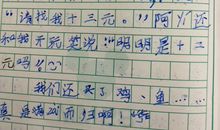 "请找我十三元。"阿姨还
和我开玩笑说:"明明是十二
元吗!"
我们还买了鸡、鱼……
真是满载而归啊!